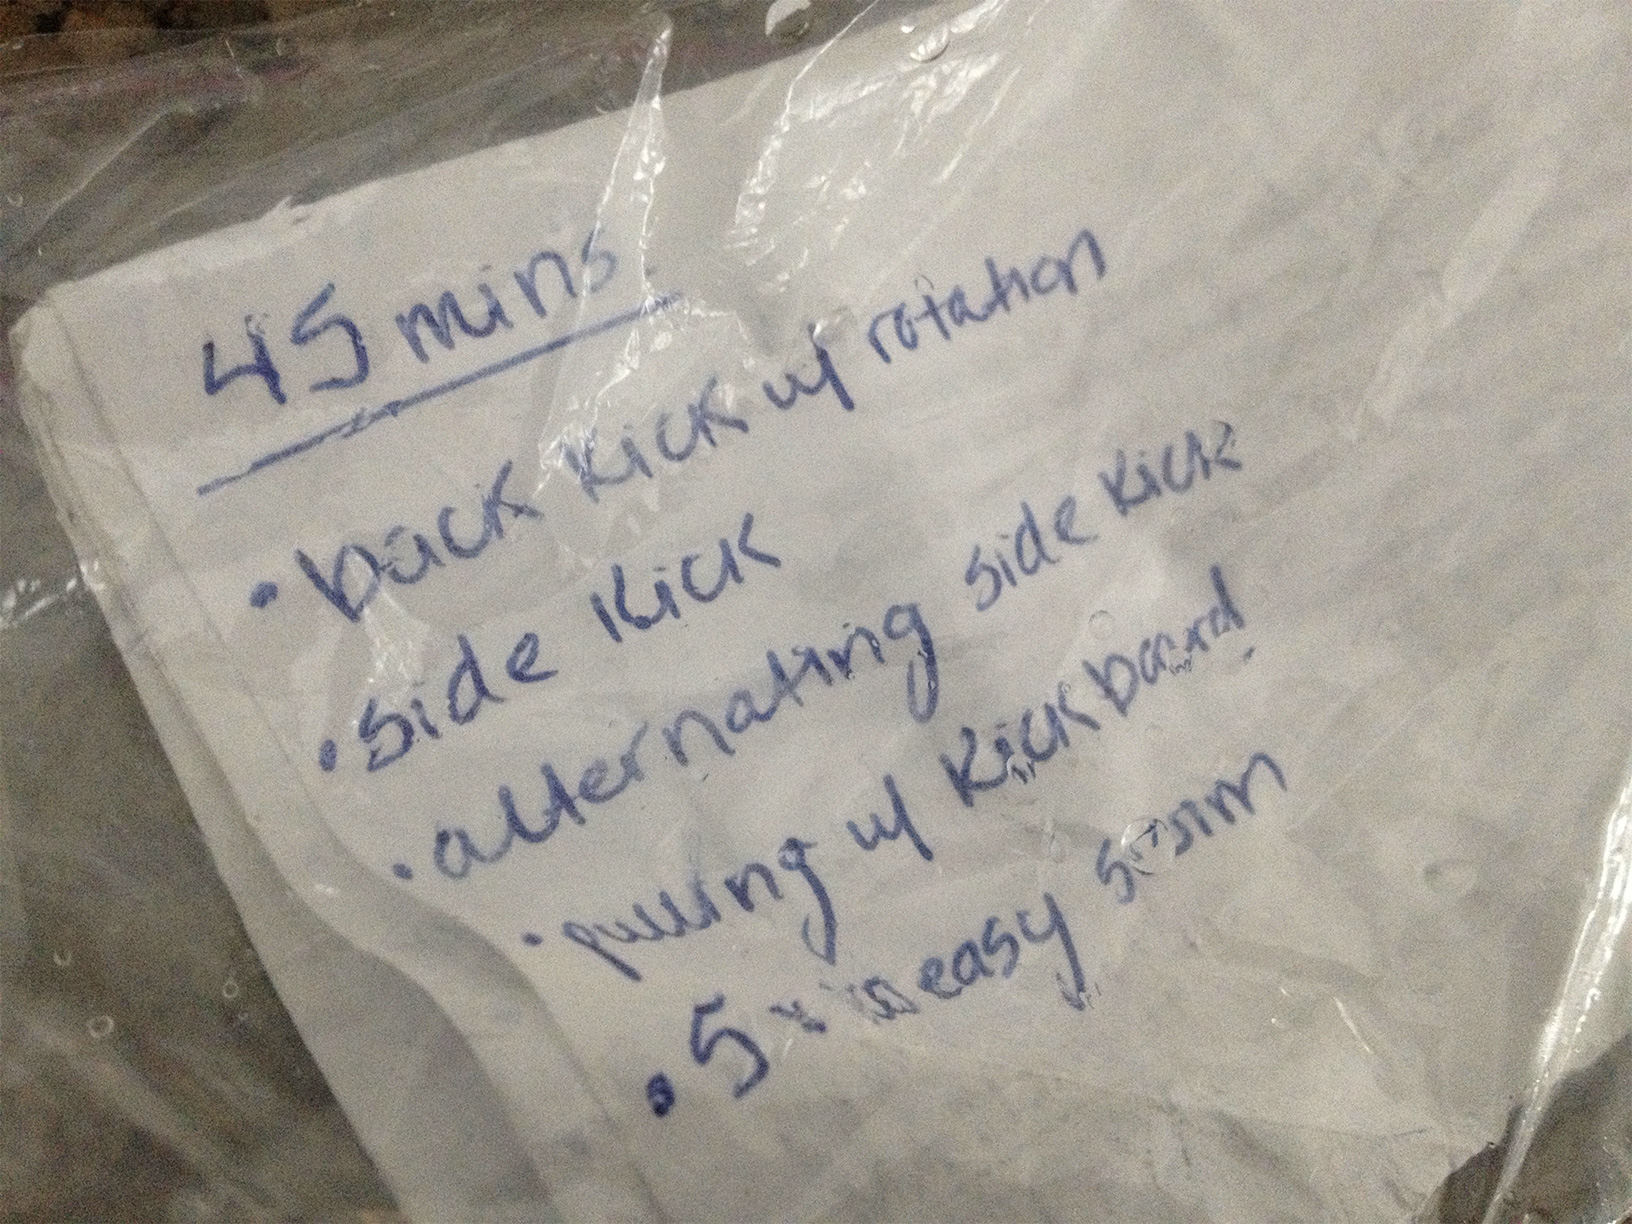 45 mins.
• back kick w/ rotation
• side kick
• alternating side kick
• pulling w/ kick board
• 5 x easy swim